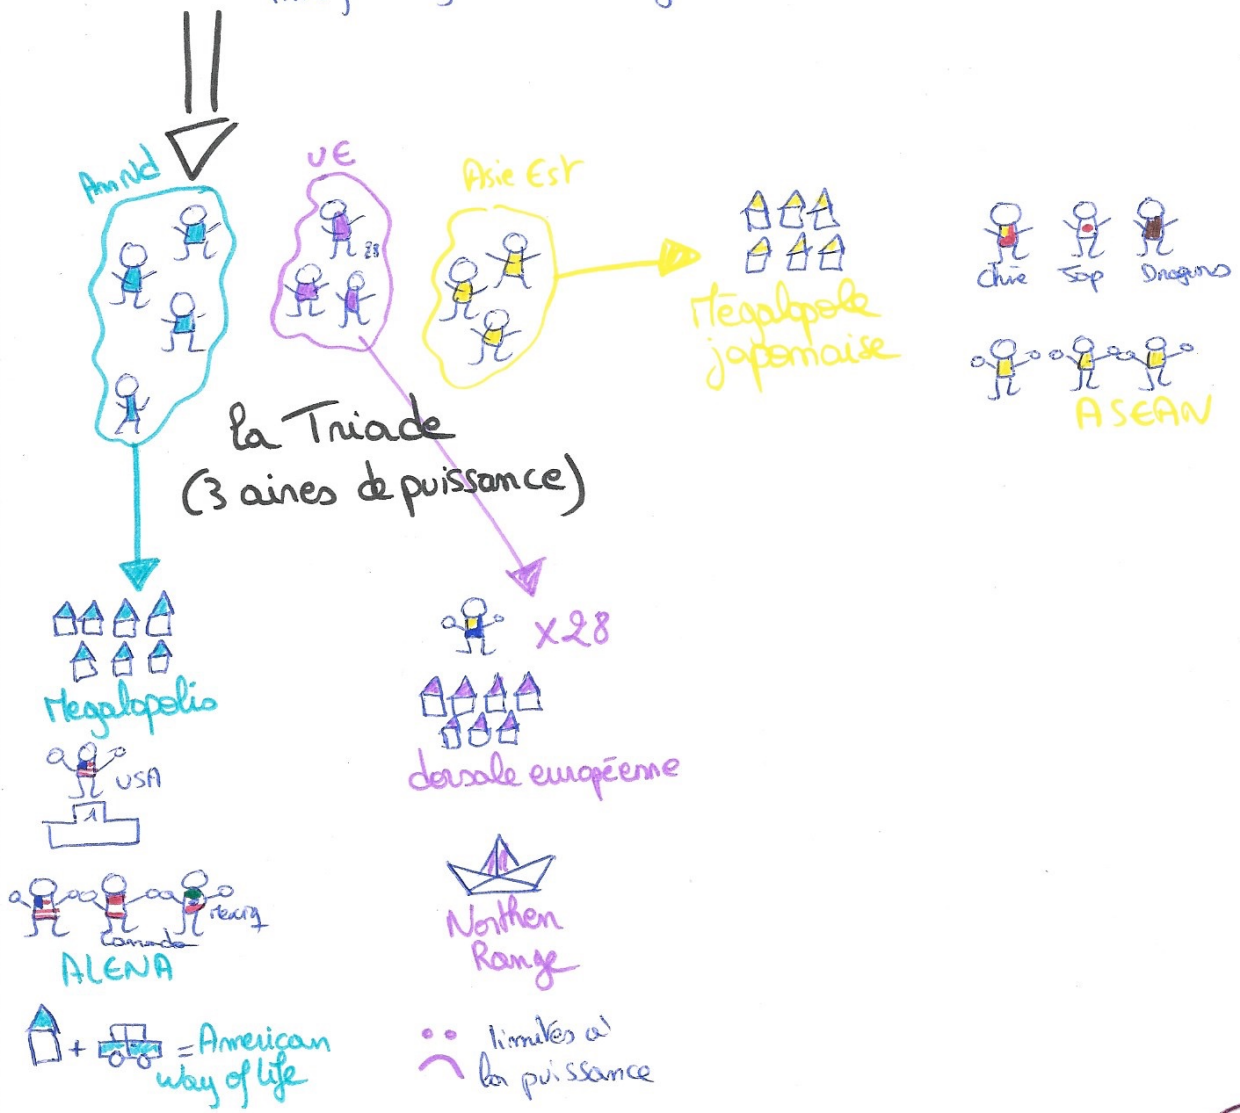 Am Nd
UE
Asie Est
28
Mégalopole
japonaise
Chine
Jap
Dragons
ASEAN
la Triade
(3 aires de puissance)
Megalopolis
USA
1
Canada
Mexiq
ALENA
+ = American
way of life
x28
dorsale européenne
Northen
Range
limites à
la puissance